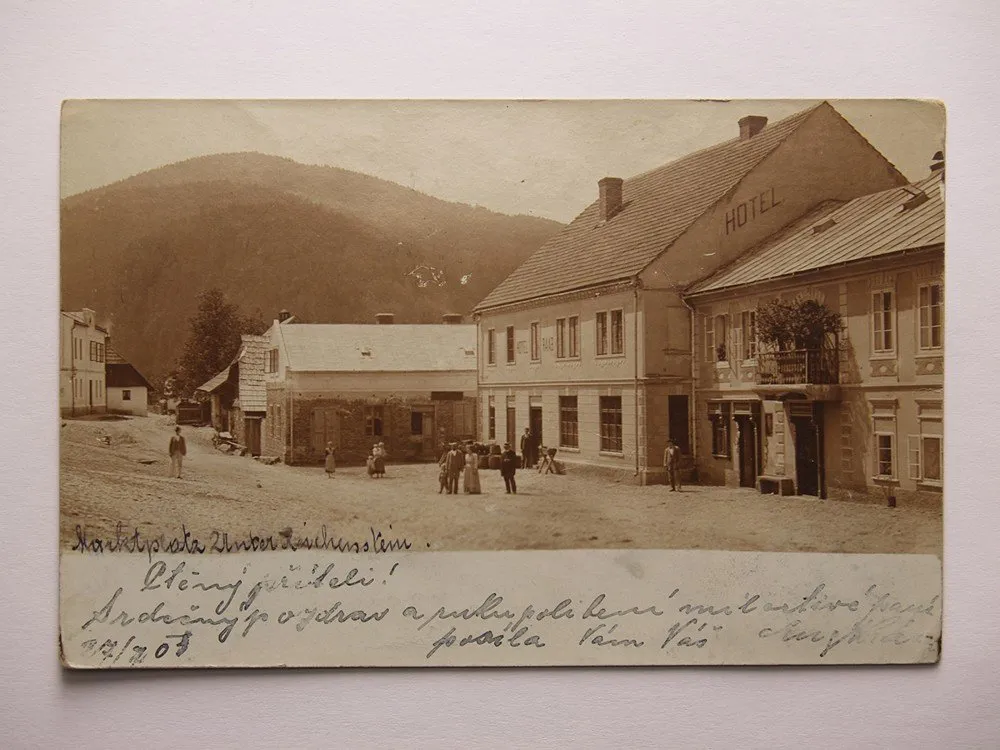 HOTEL
HOTEL
Marktplatz Unter Reichenstein.
Ctěný příteli!
Srdečný pozdrav a rukupolíbení milostivé paní
posílá Vám Váš
27/7 03